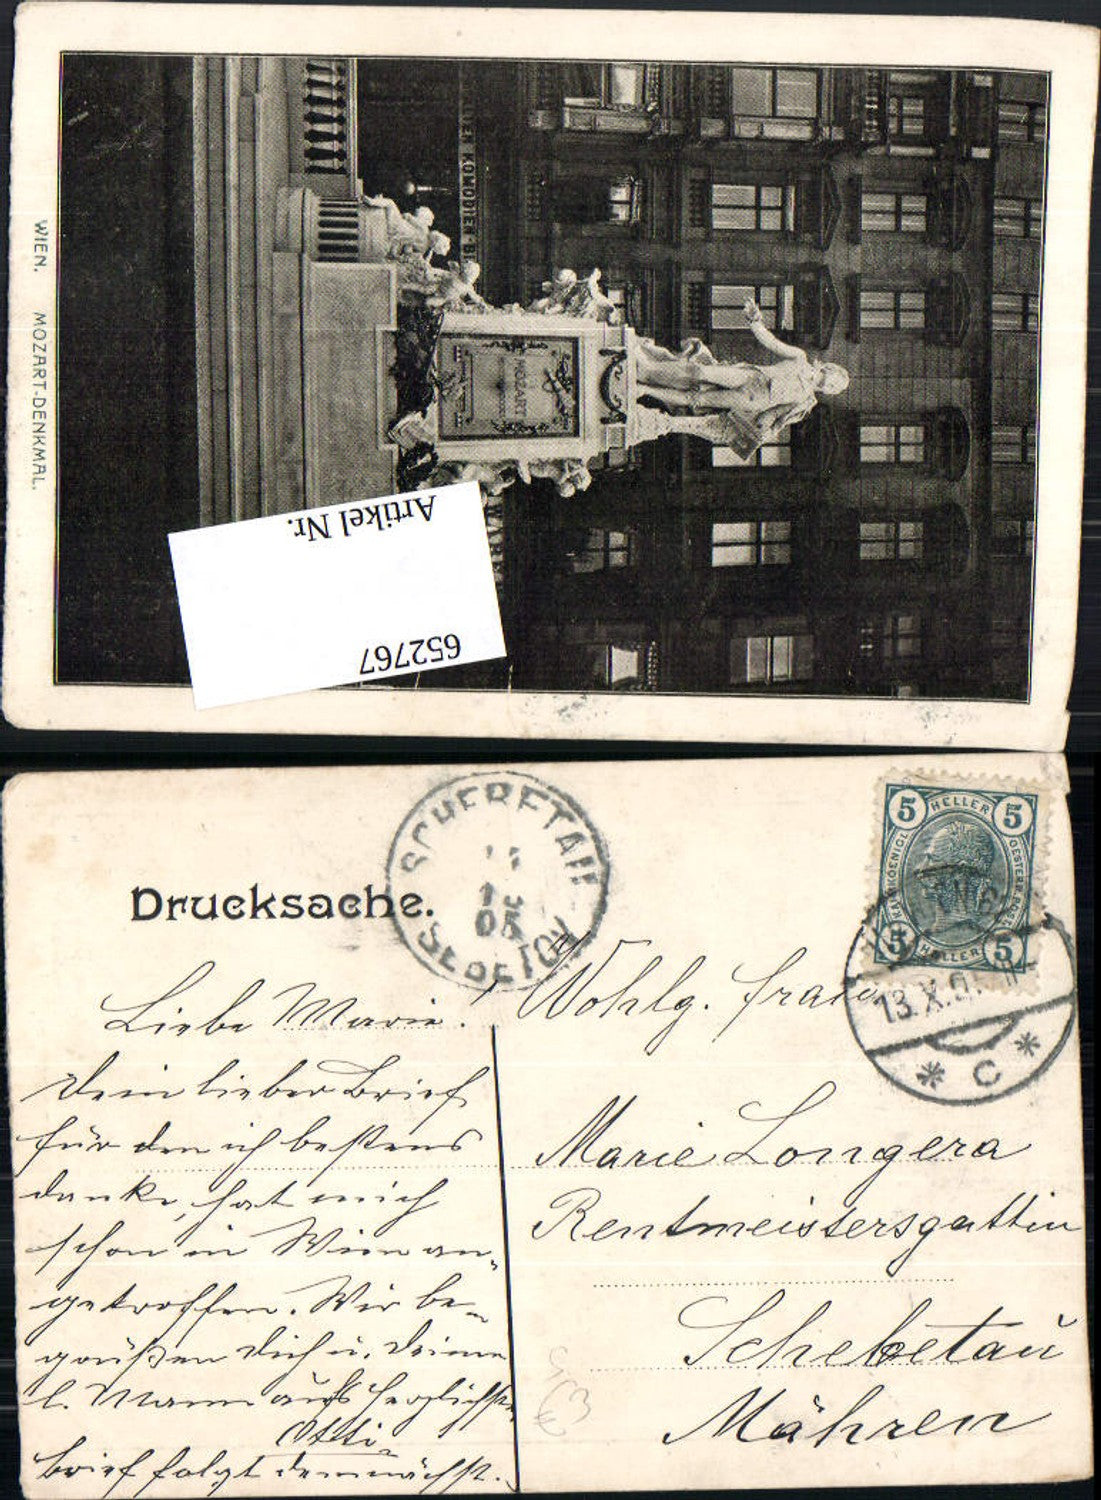 WIEN. MOZART-DENKMAL.
KOMÖDIEN-
MOZART
WARE
Artikel Nr.
652767
Drucksache.
SCHEBETAU
ŠEBETOV
05
5 HELLER 5
5 HELLER 5
13.X.0
* C *
Liebe Marie!
Dein lieber Brief
für den ich bestens
danke, hat mich
schon in Wien an-
getroffen. Wir be-
grüßen Dich u. Deinen
l. Mann aufs herzlichste
Otti
Brief folgt demnächst.
Wohlg. Frau
Marie Longera
Rentmeistersgattin
Schebetau
Mähren